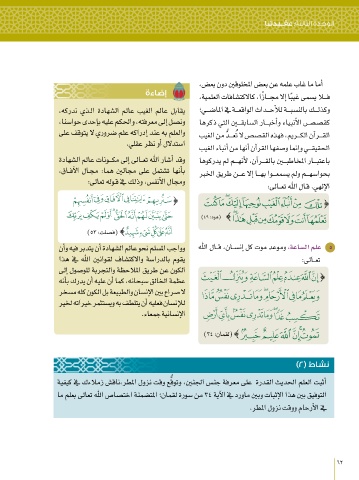 الوحدة الثانية: عقيدتنا
أما ما غاب علمه عن بعض المخلوقين دون بعض،
فلا يسمى غيبًا إلا مجازًا، كالاكتشافات العلمية.
وكذلك بالنسبة للأحداث الواقعة في الماضي؛
كقصص الأنبياء وأخبار السابقين التي ذكرها
القرآن الكريم. فهذه القصص لا تُعدُّ من الغيب
الحقيقي وإنما وصفها القرآن أنها من أنباء الغيب
باعتبار المخاطبين بالقرآن، لأنهم لم يدركوها
بحواسهم ولم يسمعوا بها إلا عن طريق الخبر
الإلهي. قال الله تعالى:
﴿ تِلْكَ مِنْ أَنْبَاءِ الْغَيْبِ نُوحِيهَا إِلَيْكَ مَا كُنْتَ
تَعْلَمُهَا أَنْتَ وَلَا قَوْمُكَ مِنْ قَبْلِ هَذَا ﴾ (هود: ٤٩)
علم الساعة، وموعد موت كل إنسان، قال الله
تعالى:
﴿ إِنَّ اللَّهَ عِنْدَهُ عِلْمُ السَّاعَةِ وَيُنَزِّلُ الْغَيْثَ
وَيَعْلَمُ مَا فِي الْأَرْحَامِ وَمَا تَدْرِي نَفْسٌ مَاذَا
تَكْسِبُ غَدًا وَمَا تَدْرِي نَفْسٌ بِأَيِّ أَرْضٍ
تَمُوتُ إِنَّ اللَّهَ عَلِيمٌ خَبِيرٌ ﴾ (لقمان: ٣٤)
إضاءة
يقابل عالم الغيب عالم الشهادة الذي ندركه،
ونصل إلى معرفته، والحكم عليه بإحدى حواسنا،
والعلم به عند إدراكه علم ضروري لا يتوقف على
استدلال أو نظر عقلي.
وقد أشار الله تعالى إلى مكونات عالم الشهادة
بأنها تشتمل على مجالين هما: مجال الآفاق،
ومجال الأنفس، وذلك في قوله تعالى:
﴿ سَنُرِيهِمْ آيَاتِنَا فِي الْآفَاقِ وَفِي أَنْفُسِهِمْ
حَتَّى يَتَبَيَّنَ لَهُمْ أَنَّهُ الْحَقُّ أَوَلَمْ يَكْفِ بِرَبِّكَ
أَنَّهُ عَلَى كُلِّ شَيْءٍ شَهِيدٌ ﴾ (فصلت: ٥٣)
وواجب المسلم نحو عالم الشهادة أن يتدبر فيه وأن
يقوم بالدراسة والاكتشاف لقوانين الله في هذا
الكون عن طريق الملاحظة والتجربة للوصول إلى
عظمة الخالق سبحانه، كما أن عليه أن يدرك بأنه
لا صراع بين الإنسان والطبيعة بل الكون كله مسخر
للإنسان فعليه أن يتلطف به ويستثمر خيراته لخير
الإنسانية جمعاء.
نشاط (٢)
أثبت العلم الحديث القدرة على معرفة جنس الجنين، وتوقُّع وقت نزول المطر. ناقش زملاءك في كيفية
التوفيق بين هذا الإثبات وبين ما ورد في الآية ٣٤ من سورة لقمان؛ المتضمنة اختصاص الله تعالى بعلم ما
في الأرحام ووقت نزول المطر.
٦٢